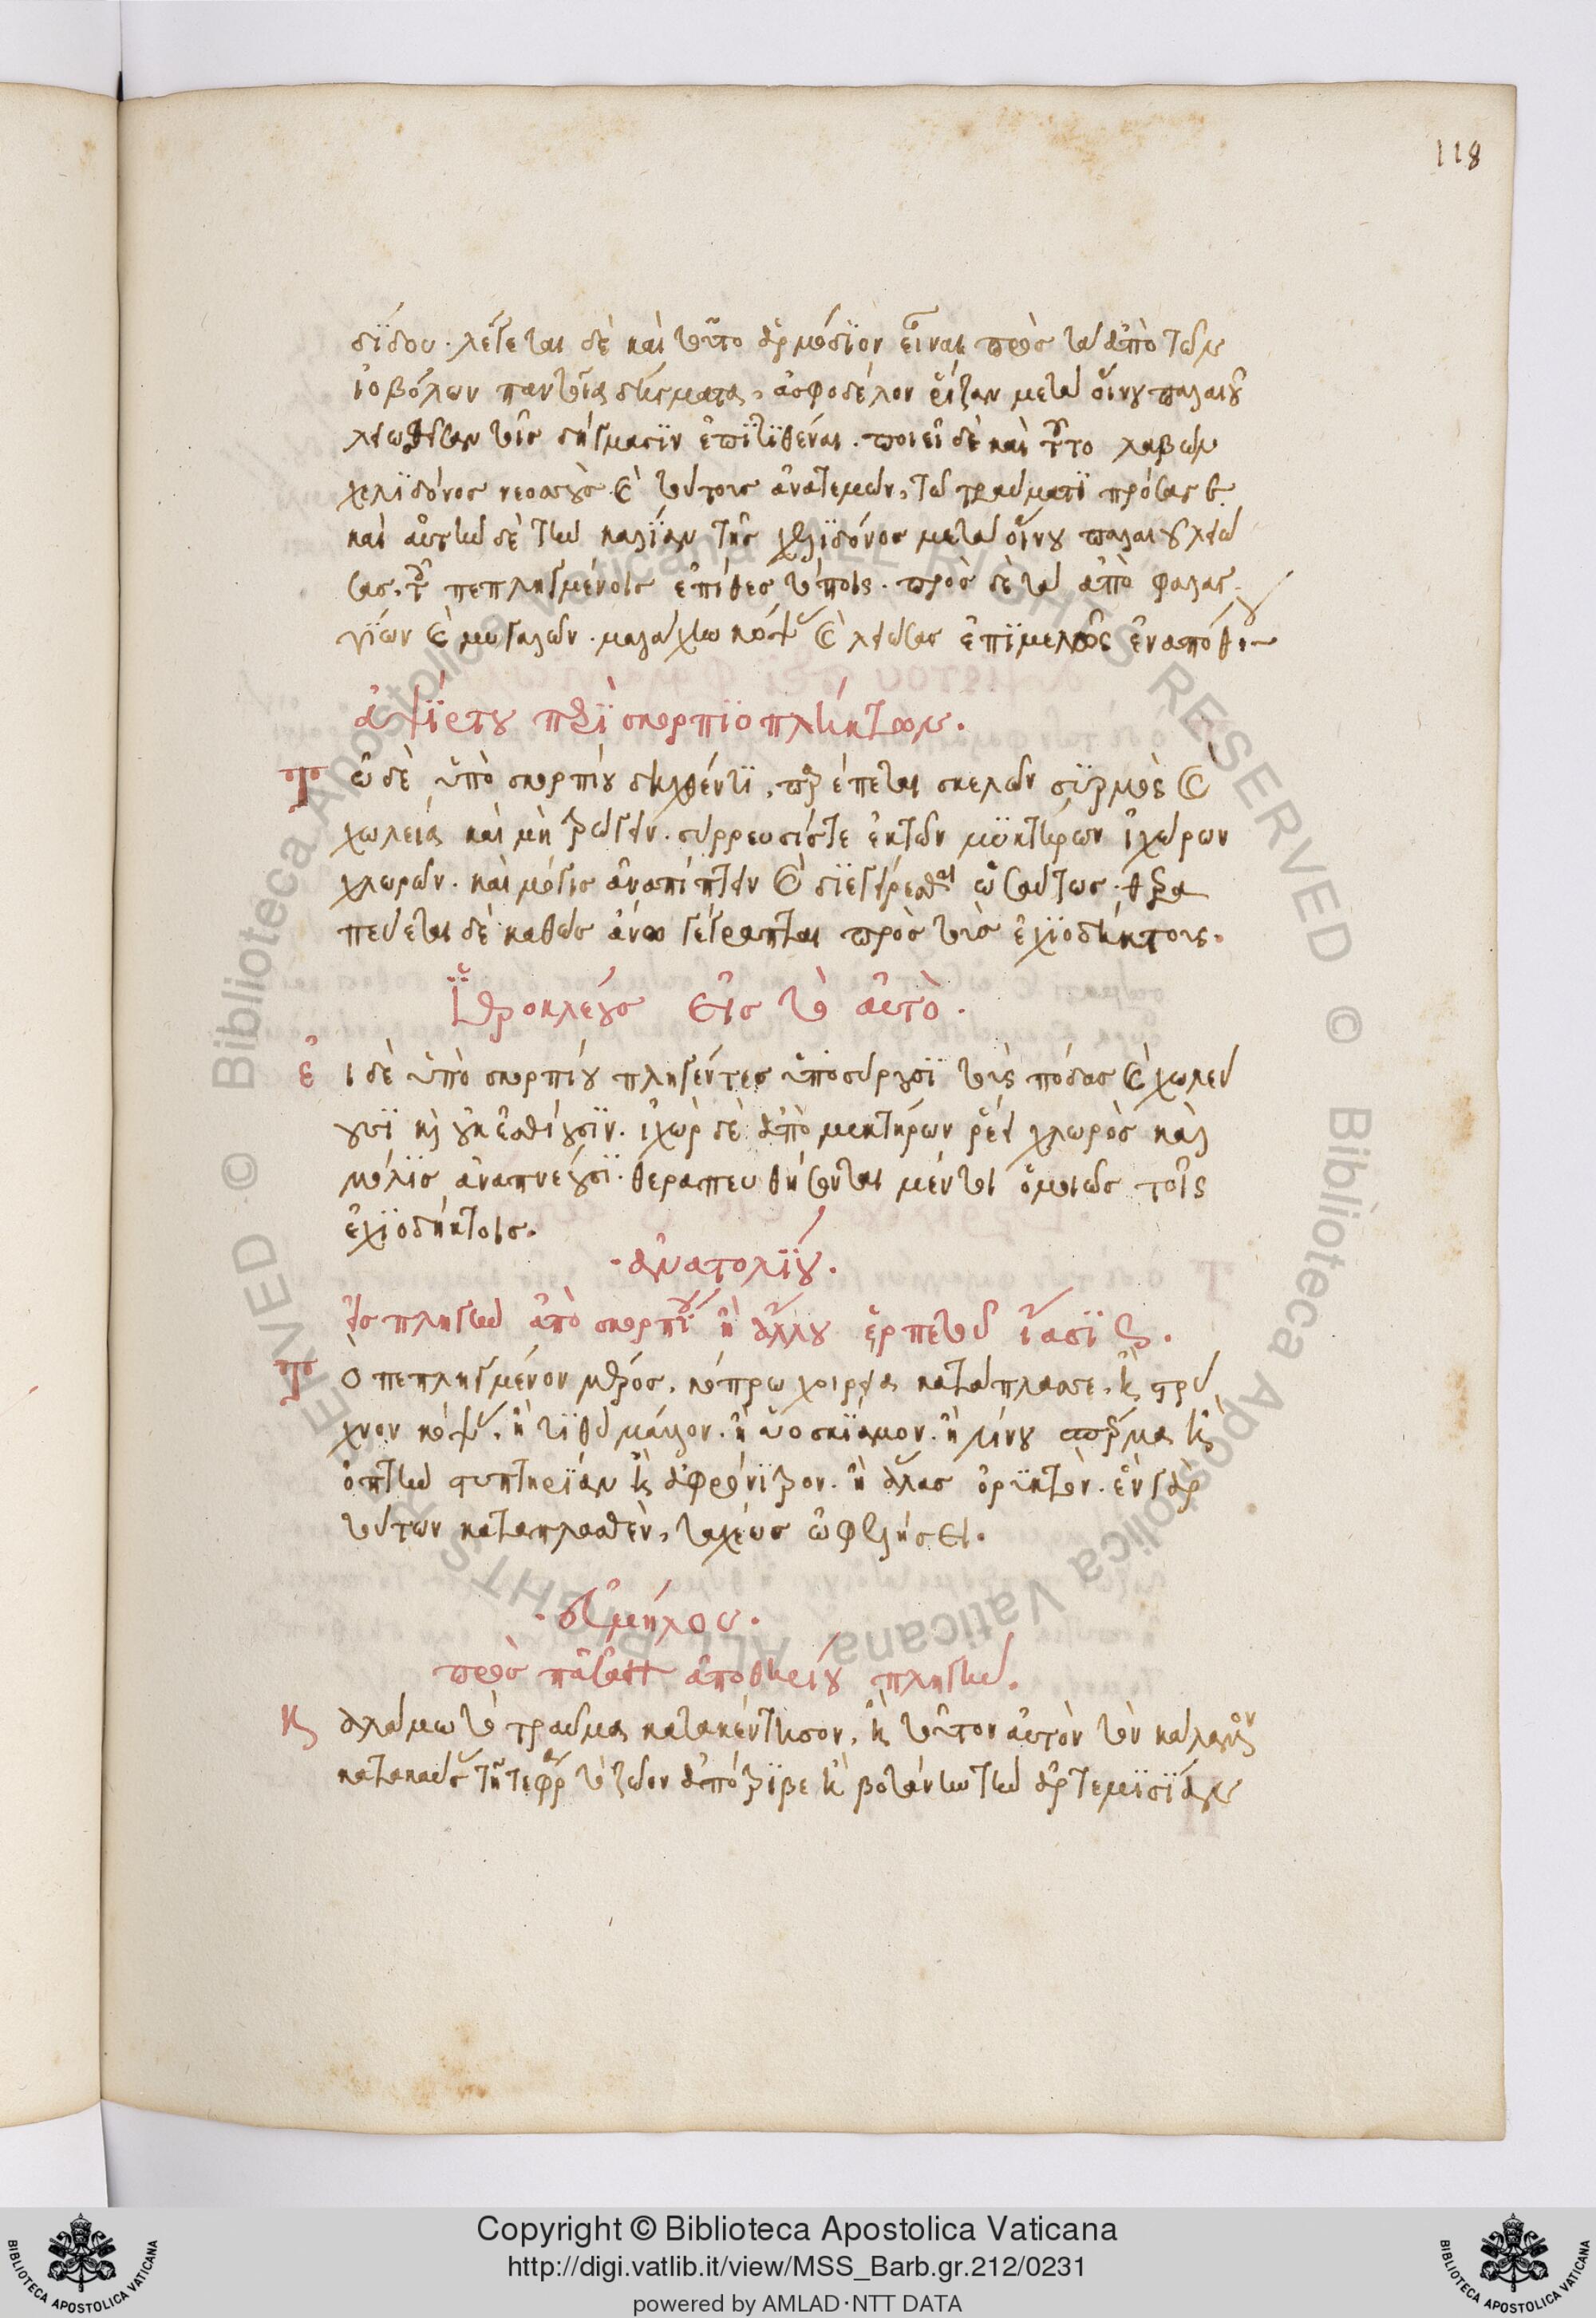 118
δίδου. λέγεται δὲ καὶ τοῦτο ἁρμόδιον εἶναι πρὸς τὰ ἀπὸ τῶν
ἰοβόλων παντοῖα δήγματα, ἀσφοδέλου ῥίζαν μετὰ οἴνου παλαιοῦ
λειωθεῖσαν τοῖς δήγμασιν ἐπιτιθέναι. ποιεῖ δὲ καὶ τοῦτο λαβὼν
χελιδόνος νεοσσοὺς καὶ τούτους ἀνατεμὼν, τῶ τραύματι πρόσαγε.
καὶ αὐτὴν δὲ τὴν καλίαν τῆς χελιδόνος μετὰ οἴνου παλαιοῦ λειώ
σας, τοῖς πεπληγμένοις ἐπίθες τόποις. πρὸς δὲ τὰ ἀπὸ φαλαγ
γίων καὶ μυγαλῶν. μαλάχην κόψον καὶ λειώσας ἐπιμελῶς ἐναπόθου
ἀψύρτου περὶ σκορπιοπλήκτων.
Τῶ δὲ ὑπὸ σκορπίου δηχθέντι, παρέπεται σκελῶν συρμὸς καὶ
χωλεία καὶ μὴ τρώγειν. συρρευσίστε ἐκτῶν μυκτήρων ἰχώρων
χλωρῶν. καὶ μόγις ἀναπίπτειν καὶ διεγείρεσθαι ὡσαύτως. θερα
πεύεται δὲ καθὼς ἄνω γέγραπται πρὸς τοὺς ἐχιοδήκτους.
Ἱεροκλέους εἰς τὸ αὐτὸ.
Ει δὲ ὑπὸ σκορπίου πληγέντες ὑποσύρουσι τοὺς πόδας καὶ χωλεύ
ουσι καὶ οὐκ ἐσθίουσιν. ἰχὼρ δὲ ἀπὸ μυκτήρων ῥέει χλωρὸς καὶ
μόλις ἀναπνέουσι. θεραπευθήσονται μέντοι ὁμοίως τοῖς
ἐχιοδήκτοις.
·ἀνατολίου.
εἰς πληγὴν ἀπὸ σκορπίου ἢ ἄλλου ἑρπετοῦ ἴασις.
Τὸ πεπληγμένον μέρος, κόπρω χοιρεία κατάπλασσε, καὶ τρύ
χνον κόψον, ἢ τιθύμαλλον. ἢ ὑοσκίαμον. ἢ λίνου σπέρμα καὶ
ὀπτὴν στυπτηρίαν καὶ ἀφρόνιτρον. ἢ ἅλας ὀρυκτὸν. ἓν γὰρ
τούτων καταπλασθὲν, ταχέως ὠφελήσει.
·εὐμήλου.
πρὸς πᾶσαν ἀπὸ θηρίου πληγὴν.
Καλάμω τὸ τραῦμα κατακέντησον, καὶ τοῦτον αὐτὸν τὸν κάλαμον
κατακαύσας τῆ τέφρα τὸ ζῶον ἀπότριβε καὶ βοτάνην τὴν ἀρτεμισίαν
Copyright © Biblioteca Apostolica Vaticana
http://digi.vatlib.it/view/MSS_Barb.gr.212/0231
powered by AMLAD·NTT DATA